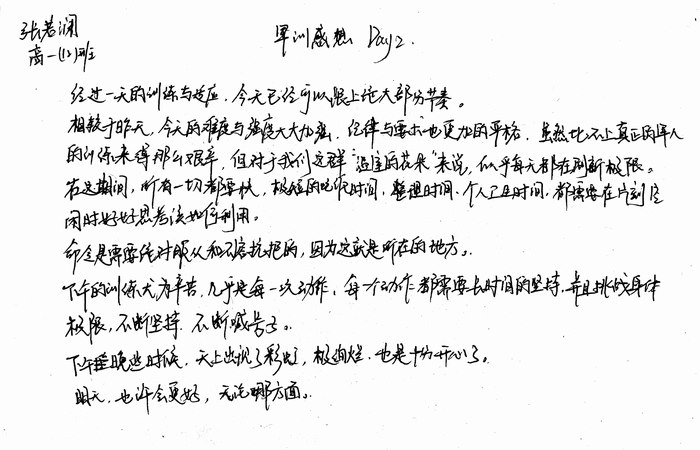 张若澜
高一(12)班
军训感想 Day2.
经过一天的训练与适应，今天已经可以跟上绝大部分节奏。
相较于昨天，今天的难度与强度大大加强，纪律与要求也更加的严格，虽然比不上真正的军人
的训练来得那么艰辛，但对于我们这群"温室的花朵"来说，似乎每天都在刷新极限。
在这期间，所有一切都要快，极短的吃饭时间，整理时间，个人卫生时间，都需要在片刻空
闲时好好思考该如何利用。
命令是需要绝对服从和不容抗拒的，因为这就是所在的地方。
下午的训练尤为辛苦，几乎是每一次动作，每一个动作都需要长时间的坚持，并且挑战身体
极限，不断坚持，不断喊号子。
下午 时候，天上出现了彩虹，极绚烂，也是十分开心了。
明天，也许会更好，无论哪方面。